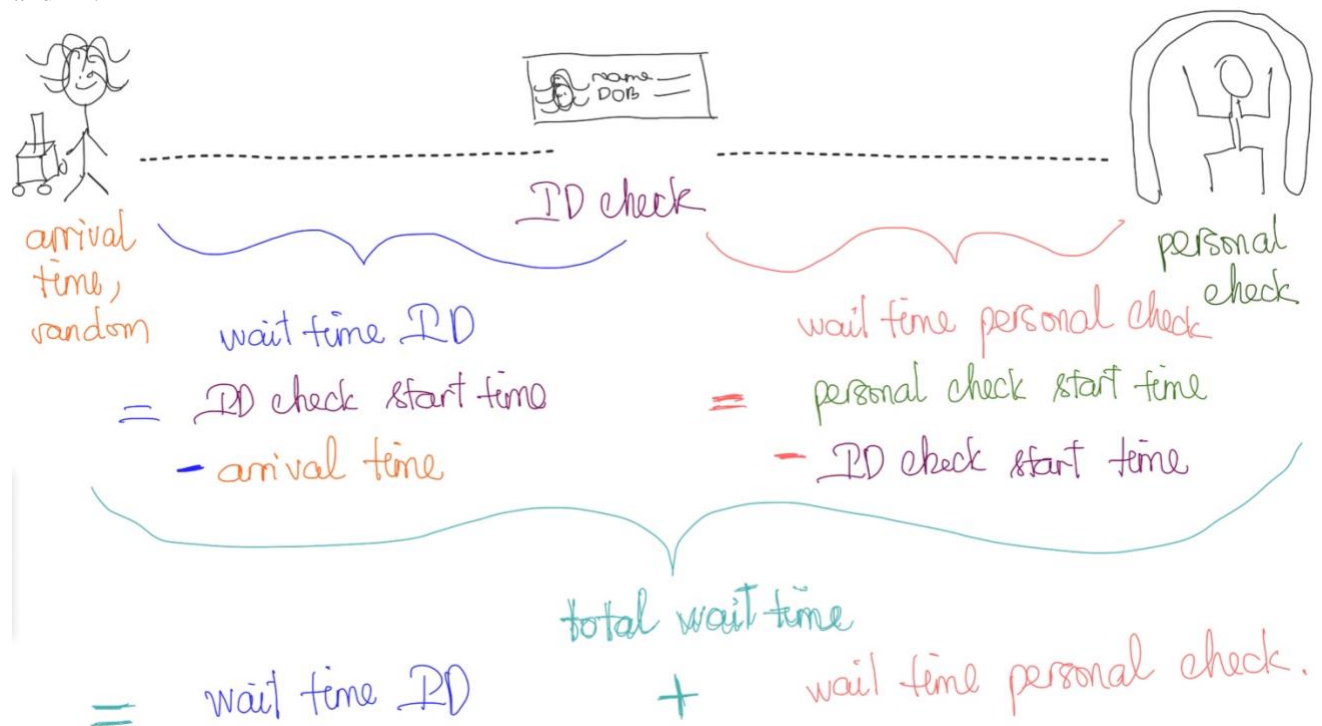 name
DOB
ID check
arrival
time,
random
personal
check
wait time ID
= ID check start time
- arrival time
wait time personal check
= personal check start time
- ID check start time
total wait time
= wait time ID + wait time personal check.